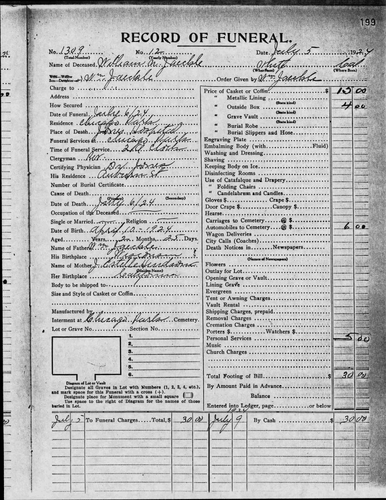 199
RECORD OF FUNERAL.
No. 1309 No. 12 Date July 5 1924
(Total Number) (Yearly Number)
Name of Deceased William
(What Race) (Where Born)
Wm Order Given by Wm
Charge to
Address
How Secured
Date of Funeral July 6/24
Residence Chicago
Place of Death Hospital
Funeral Services at Chicago
Time of Funeral Service
Clergyman Rev.
Certifying Physician Dr
His Residence
Number of Burial Certificate
Cause of Death
(Secondary)
Date of Death July 6/24
Occupation of the Deceased
Single or Married Religion
Date of Birth April 10-1924
Aged Years, 2 Months, 25 Days
Name of Father Wm
His Birthplace
Name of Mother
(Maiden Name)
Her Birthplace
Body to be shipped to
Size and Style of Casket or Coffin
Manufactured by
Interment at Chicago Cemetery.
Lot or Grave No. Section No.
1.
2.
3.
4.
5.
6.
Diagram of Lot or Vault
Designate all Graves in Lot with Numbers (1, 2, 3, 4, etc.)
and mark space for this Funeral with a cross (+).
Designate place for Monument with a small square
Use space to the right of Diagram for the names of those
buried in Lot.
Price of Casket or Coffin $ 15 00
(State kind)
" Metallic Lining
" Outside Box 4 00
(State kind)
" Grave Vault
(State kind)
" Burial Robe
(State kind)
" Burial Slippers and Hose
Engraving Plate
Embalming Body (with Fluid)
Washing and Dressing
Shaving
Keeping Body on Ice
Disinfecting Rooms
Use of Catafalque and Drapery
" Folding Chairs
" Candelabrum and Candles
Gloves $ Crape $
Door Crape $ Canopy $
Hearse
Carriages to Cemetery @ $
Automobiles to Cemetery @ $ 6 00
Wagon Deliveries
City Calls (Coaches)
Death Notices in Newspapers
Flowers
Outlay for Lot
Opening Grave or Vault
Lining Grave
Evergreen
Tent or Awning Charges
Vault Rental
Shipping Charges, prepaid
Removal Charges
Cremation Charges
Porters $ Watchers $
Personal Services 5 00
Music
Church Charges
Total Footing of Bill $ 30 00
By Amount Paid in Advance
Balance $
Entered into Ledger, page or below.
July 5 To Funeral Charges, Total $ 30 00 July 9 By Cash $ 30 00